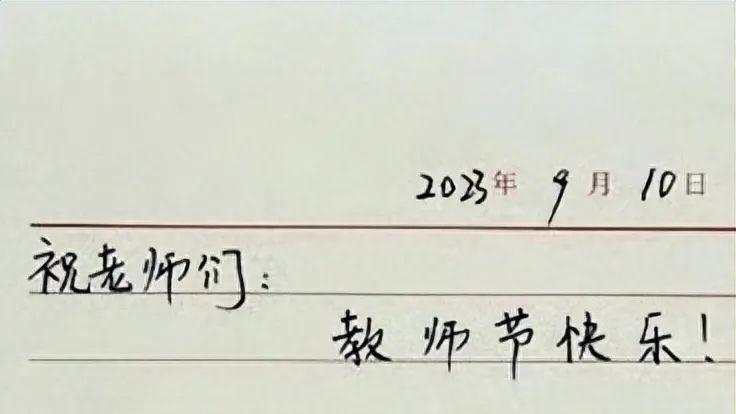 2023年 9月 10日
祝老师们:
教师节快乐!